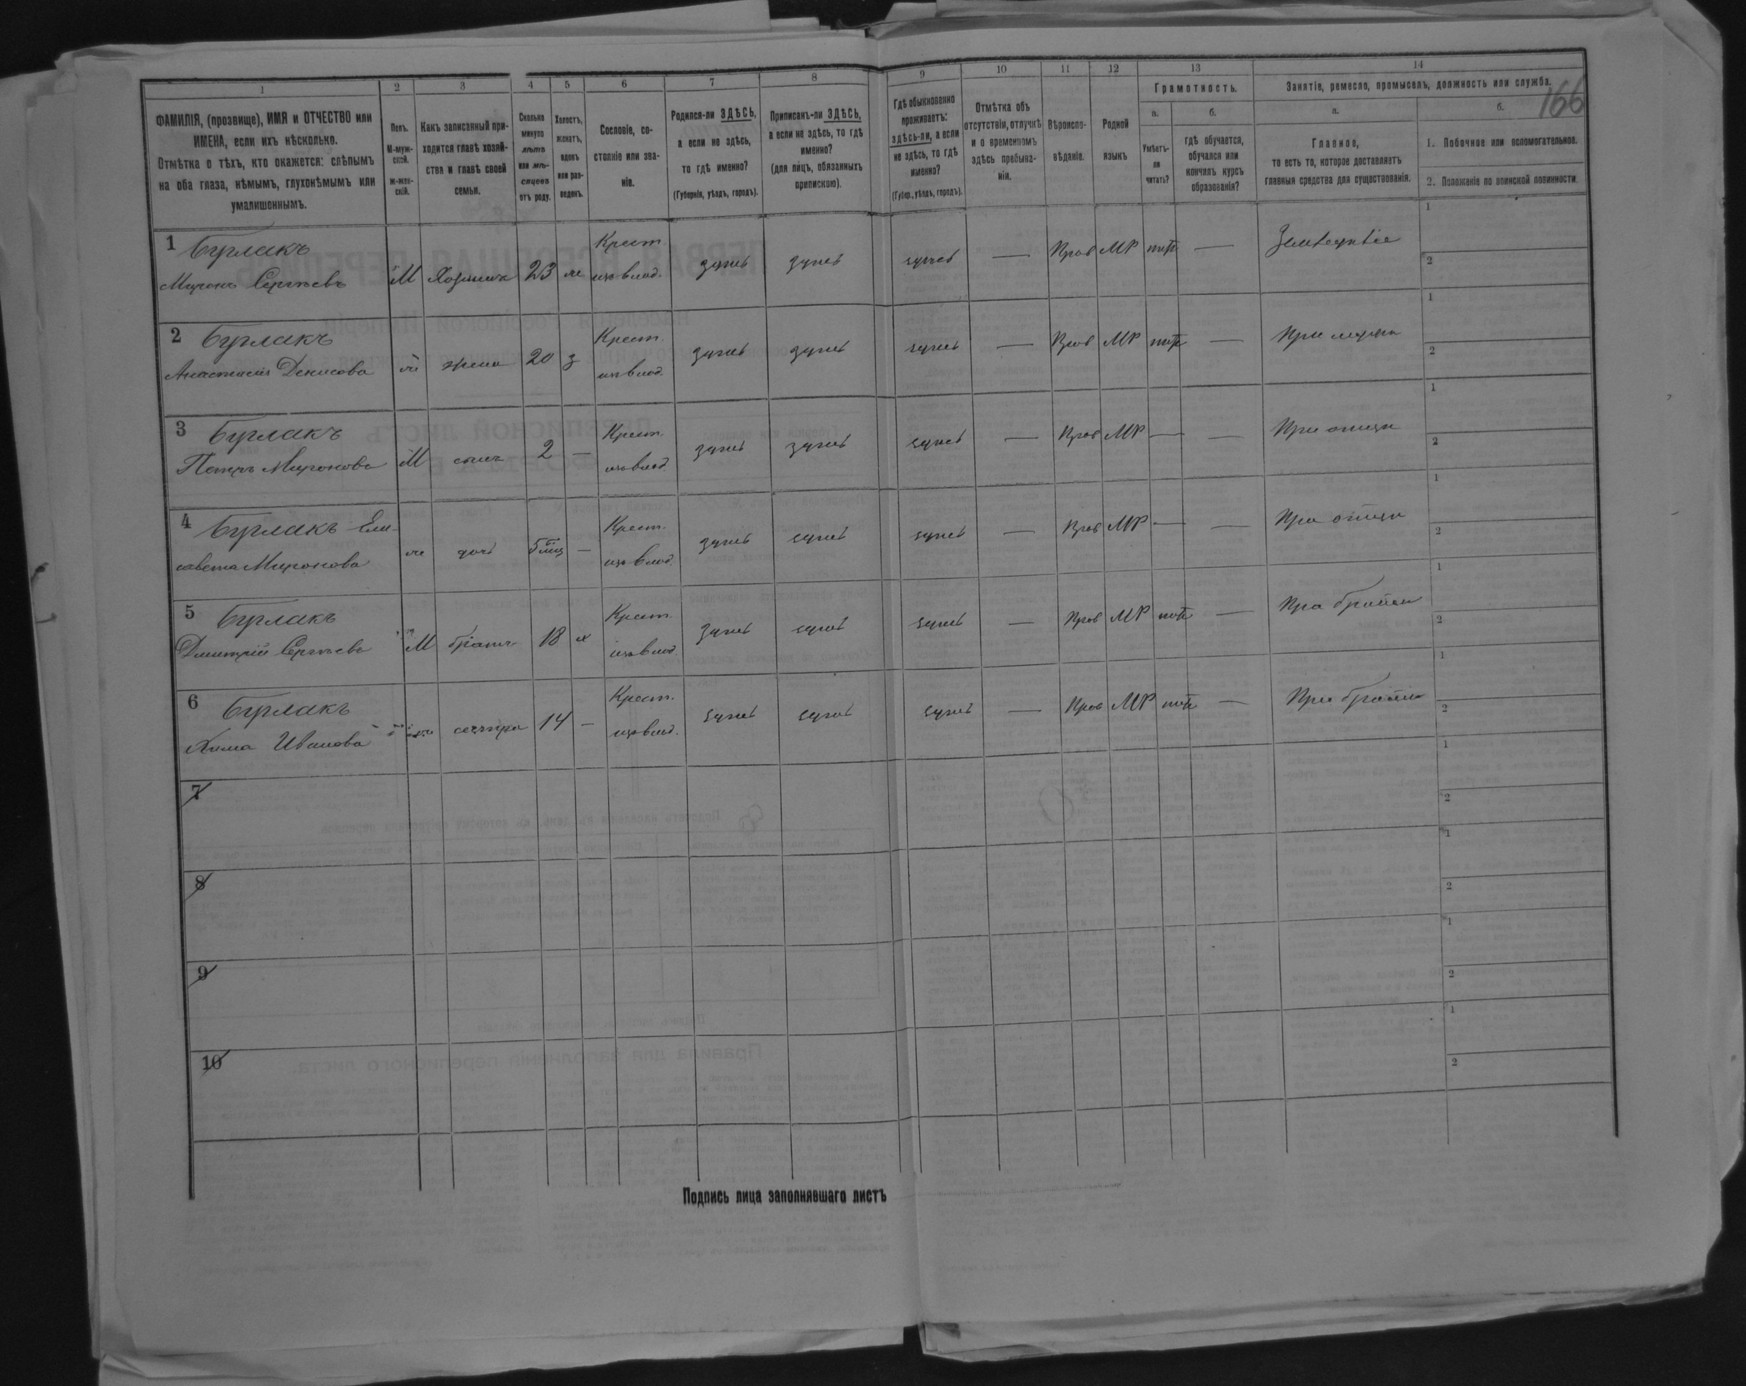 166
1 2 3 4 5 6 7 8 9 10 11 12 13 14
ФАМИЛІЯ, (прозвище), ИМЯ и ОТЧЕСТВО или
ИМЕНА, если ихъ нѣсколько.
Отмѣтка о тѣхъ, кто окажется: слѣпымъ
на оба глаза, нѣмымъ, глухонѣмымъ или
умалишеннымъ.
Полъ.
М-муж-
ской.
ж-жен-
скій.
Какъ записанный при-
ходится главѣ хозяй-
ства и главѣ своей
семьи.
Сколько
минуло
лѣтъ
или мѣ-
сяцевъ
отъ роду.
Холостъ,
женатъ,
вдовъ
или раз-
веденъ.
Сословіе, со-
стояніе или зва-
ніе.
Родился-ли ЗДѢСЬ,
а если не здѣсь,
то гдѣ именно?
(Губернія, уѣздъ, городъ).
Приписанъ-ли ЗДѢСЬ,
а если не здѣсь, то гдѣ
именно?
(для лицъ, обязанныхъ
припискою).
Гдѣ обыкновенно
проживаетъ:
здѣсь-ли, а если
не здѣсь, то гдѣ
именно?
(Губер., уѣздъ, городъ).
Отмѣтка объ
отсутствіи, отлучкѣ
и о временномъ
здѣсь пребыва-
ніи.
Вѣроиспо-
вѣданіе.
Родной
языкъ
Грамотность.
а.
Умѣетъ-
ли
читать?
б.
гдѣ обучается,
обучался или
кончилъ курсъ
образованія?
Занятіе, ремесло, промыселъ, должность или служба.
а.
Главное,
то есть то, которое доставляетъ
главныя средства для существованія.
б.
1. Побочное или вспомогательное.
2. Положеніе по воинской повинности.
1 Бурлакъ Крест.
Миронъ Сергѣевъ М Хозяинъ 23 ж изъ влад. здѣсь здѣсь здѣсь — Прав МР нѣтъ — Земледѣліе
1
2
2 Бурлакъ Крест.
Анастасія Денисова ж жена 20 з изъ влад. здѣсь здѣсь здѣсь — Прав МР нѣтъ — При мужѣ
1
2
3 Бурлакъ Крест.
Петръ Мироновъ М сынъ 2 — изъ влад. здѣсь здѣсь здѣсь — Прав МР — — При отцѣ
1
2
4 Бурлакъ Ели- Крест.
савета Миронова ж дочь — изъ влад. здѣсь здѣсь здѣсь — Прав МР — — При отцѣ
1
2
5 Бурлакъ Крест.
Дмитрій Сергѣевъ М братъ 18 х изъ влад. здѣсь здѣсь здѣсь — Прав МР нѣтъ — При братѣ
1
2
6 Бурлакъ Крест.
Иванова сестра 14 — изъ влад. здѣсь здѣсь здѣсь — Прав МР нѣтъ — При братѣ
1
2
7
1
2
8
1
2
9
1
2
10
1
2
Подпись лица заполнявшаго листъ